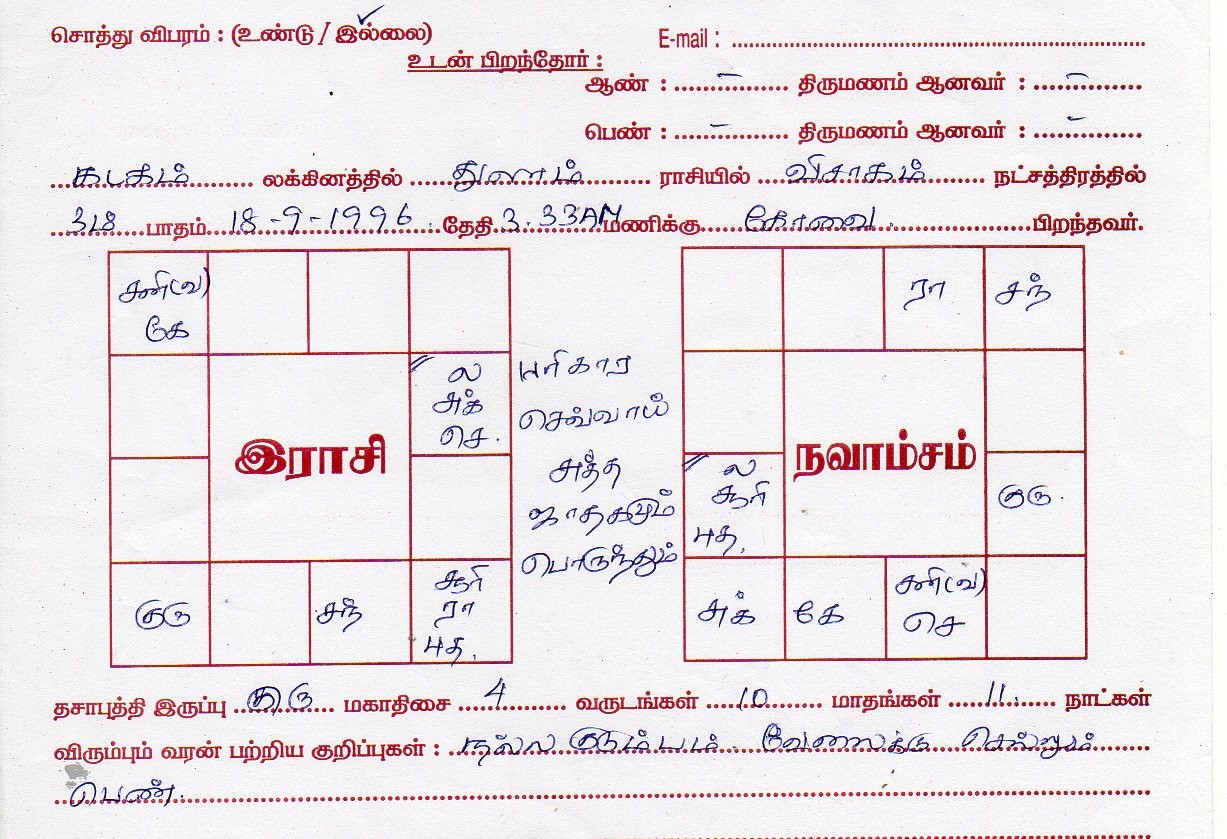 சொத்து விபரம் : (உண்டு / இல்லை) ✓
E-mail : ........................
உடன் பிறந்தோர் :
ஆண் : ..... – ..... திருமணம் ஆனவர் : ..... – .....
பெண் : ..... – ..... திருமணம் ஆனவர் : ..... – .....
கடகம் லக்கினத்தில் துலாம் ராசியில் விசாகம் நட்சத்திரத்தில்
3ம் பாதம் 18-9-1996 தேதி 3.33AM மணிக்கு கோவை. பிறந்தவர்.
சனி(வ)
கே
ல
சுக்
செ.
இராசி
குரு
சந்
சூரி
ரா
புத.
பரிகார
செவ்வாய்
சுத்த
ஜாதகமும்
பொருந்தும்
ரா
சந்
ல
சூரி
புத.
நவாம்சம்
குரு.
சுக்
கே
சனி(வ)
செ
தசாபுத்தி இருப்பு குரு மகாதிசை 4 வருடங்கள் 10 மாதங்கள் 11 நாட்கள்
விரும்பும் வரன் பற்றிய குறிப்புகள் : நல்ல குடும்பம். வேலைக்கு செல்லும்
பெண்.